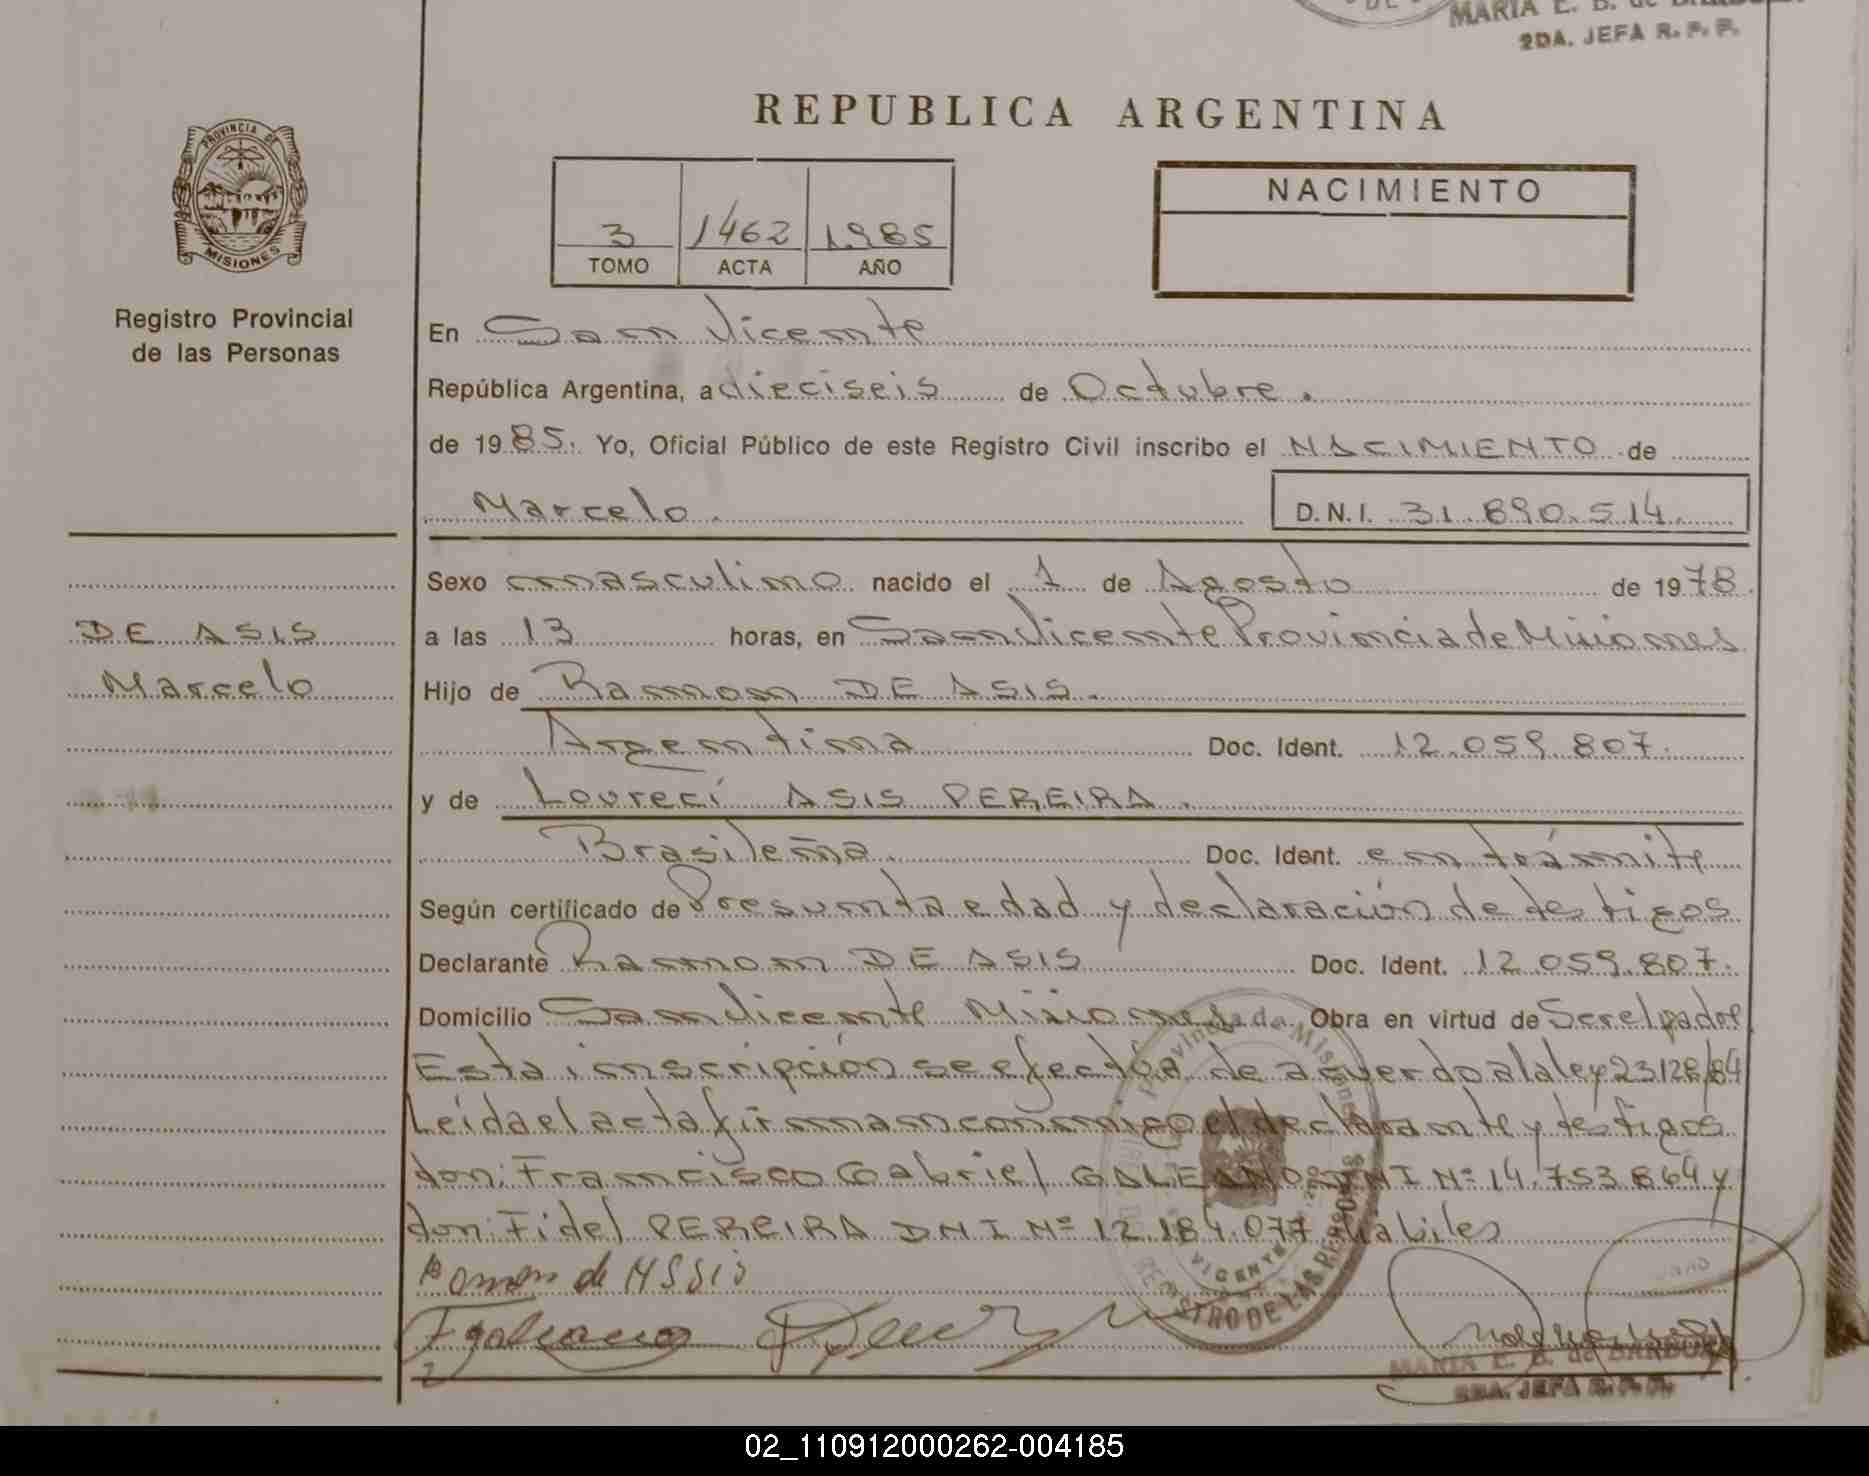 MARIA E. B. de BARBOZA
2DA. JEFA R. P. P.
REPUBLICA ARGENTINA
PROVINCIA DE
MISIONES
Registro Provincial
de las Personas
3 1462 1985
TOMO ACTA AÑO
NACIMIENTO
En San Vicente
República Argentina, a dieciseis de Octubre.
de 1985. Yo, Oficial Público de este Registro Civil inscribo el NACIMIENTO de
Marcelo. D.N.I. 31.890.514.
DE ASIS
Marcelo
Sexo masculino nacido el 1 de Agosto de 1978
a las 13 horas, en San Vicente Provincia de Misiones
Hijo de Ramon DE ASIS.
Argentina Doc. Ident. 12.059.807.
y de Loureci ASIS PEREIRA.
Brasileña. Doc. Ident. en trámite
Según certificado de Presunta edad y declaración de testigos
Declarante Ramon DE ASIS Doc. Ident. 12.059.807.
Domicilio San Vicente Misiones Obra en virtud de Ser el padre
Esta inscripción se efectúa de acuerdo a la ley 23128/84
Leída el acta firman conmigo el declarante y testigos
don: Francisco Gabriel GALEANO DNI Nº 14.753.864 y
don: Fidel PEREIRA DNI Nº 12.184.077 Hábiles
Romon de ASSis
Fgaleano
MARIA E. B. de BARBOZA
2DA. JEFA R. P. P.
02_110912000262-004185